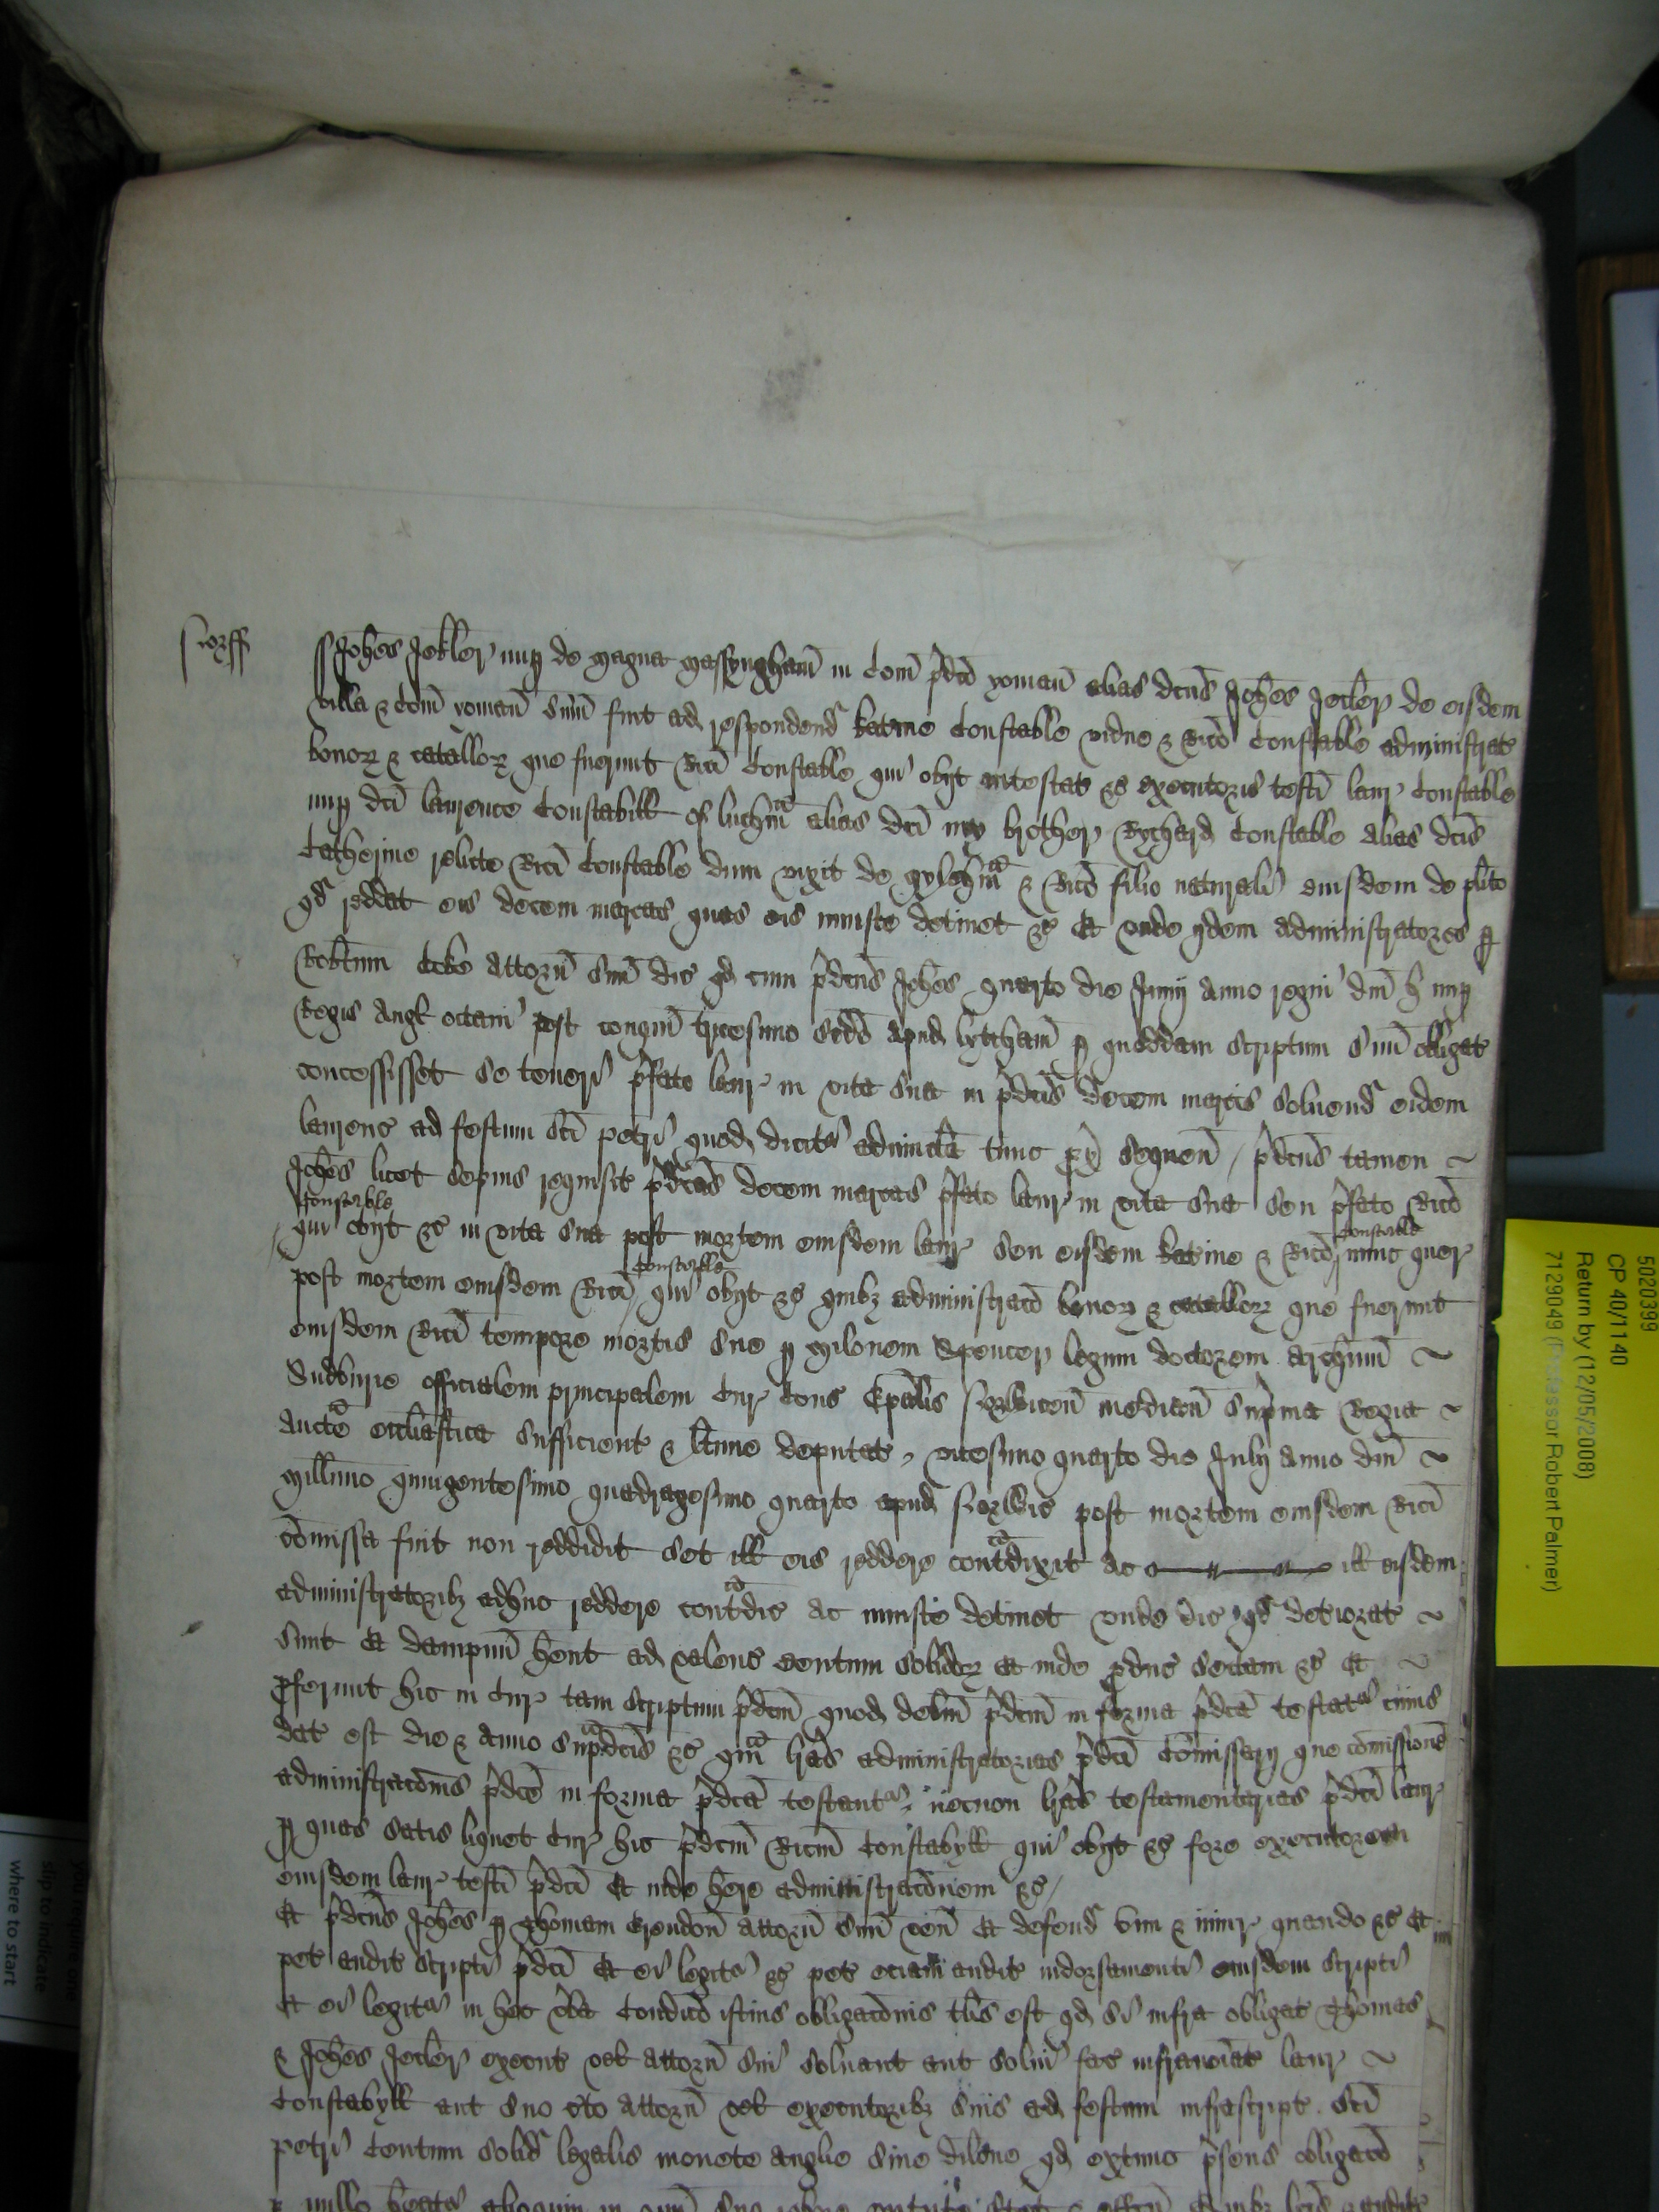 Norff
Johes Jekler nup de magna Massyngham in Com pdco yoman alias dcus Johes Jecler de eisdem
villa & Com yoman sum fuit ad respondend Katine Constable vidue & Rico Constable administrat
bonor & catallor que fuerunt Rici Constable qui obijt intestat &c executoris testi laur Constable
nup dci laurence Constabill of luchm alias dci my brother Rychard Constable alias dcus
Catherine relicte Rici Constable dum vixit de & Rico filio naturali eiusdem de plito
qd reddat eis decem marcas quas eis iniuste detinet &c Et unde ijdem administratores p
Robtum Coke attorn suu dic qd cum pdcus Johes quarto die Junij anno regni dni H nup
Regis Angl octavi post conqm tricesimo scdo apud lytcham p quoddam scriptum suu obligat
concessisset se teneri pfato laur in vita sua in pdcis decem marcis solvend eidem
laurenc ad festum sci petri quod dicitr advincla tunc px sequen / pdcus tamen
Johes licet sepius requisit pdcas decem marcas pfato laur in vita sua seu pfato Rico
Constable
qui obijt &c in vita sua post mortem eiusdem laur seu eisdem Katine & Rico Constable nunc quer
post mortem eiusdem Rici Constable qui obijt &c quibz administraco bonor & catallor que fuerunt
eiusdem Rici tempore mortis sue p Milonem Spencer legum doctorem Archinu
Sudburie officialem principalem Cur Cons Epalis Norwicen median suprma Regia
aucte eccliastica sufficient & ltime deputat, vicesimo quarto die Julij anno dni
millimo quingentesimo quadragesimo quarto apud Norwic post mortem eiusdem Rici
comissa fuit non reddidit set ill eis reddere contadixit ac ill eisdem
administratoribz adhuc reddere contadic ac iniuste detinet unde dic qd deteriorat
sunt Et dampnu hent ad valenc Centum solidor Et inde pduc sectam &c Et
pferunt hic in Cur tam scriptum pdcm quod debm pdcm in forma pdca testatr cuius
dat est die & anno supadcis &c qam lras administratorias pdci Comissarij que comissione
administracois pdce in forma pdca testantr, necnon lras testamentarias pdci laur
p quas satis liquet Cur hic pdcm Ricm Constabyll qui obijt &c fore executorem
eiusdem laur testi pdci Et inde here administracoem &c /
Et pdcus Johes p Thomam Crendon attorn suu ven Et defend vim & iniur quando &c Et
pet audit scripti pdci Et ei legitr &c pet eciam audit indorsamenti eiusdem scripti
Et ei legitr in hec vba Condico istius obligacois tlis est qd si infra obligat Thomas
& Johes Jecler execut vel attorn sui solvant aut solvi fac infranoiat laur
Constabyll aut suo cto attorn vel executoribz suis ad festum infrascript sci
petri Centum solid legalis monete anglie sine dilone qd extunc psens obligaco
5020399
CP 40/1140
Return by (12/05/2008)
7129049 (Professor Robert Palmer)
slip to indicate
where to start